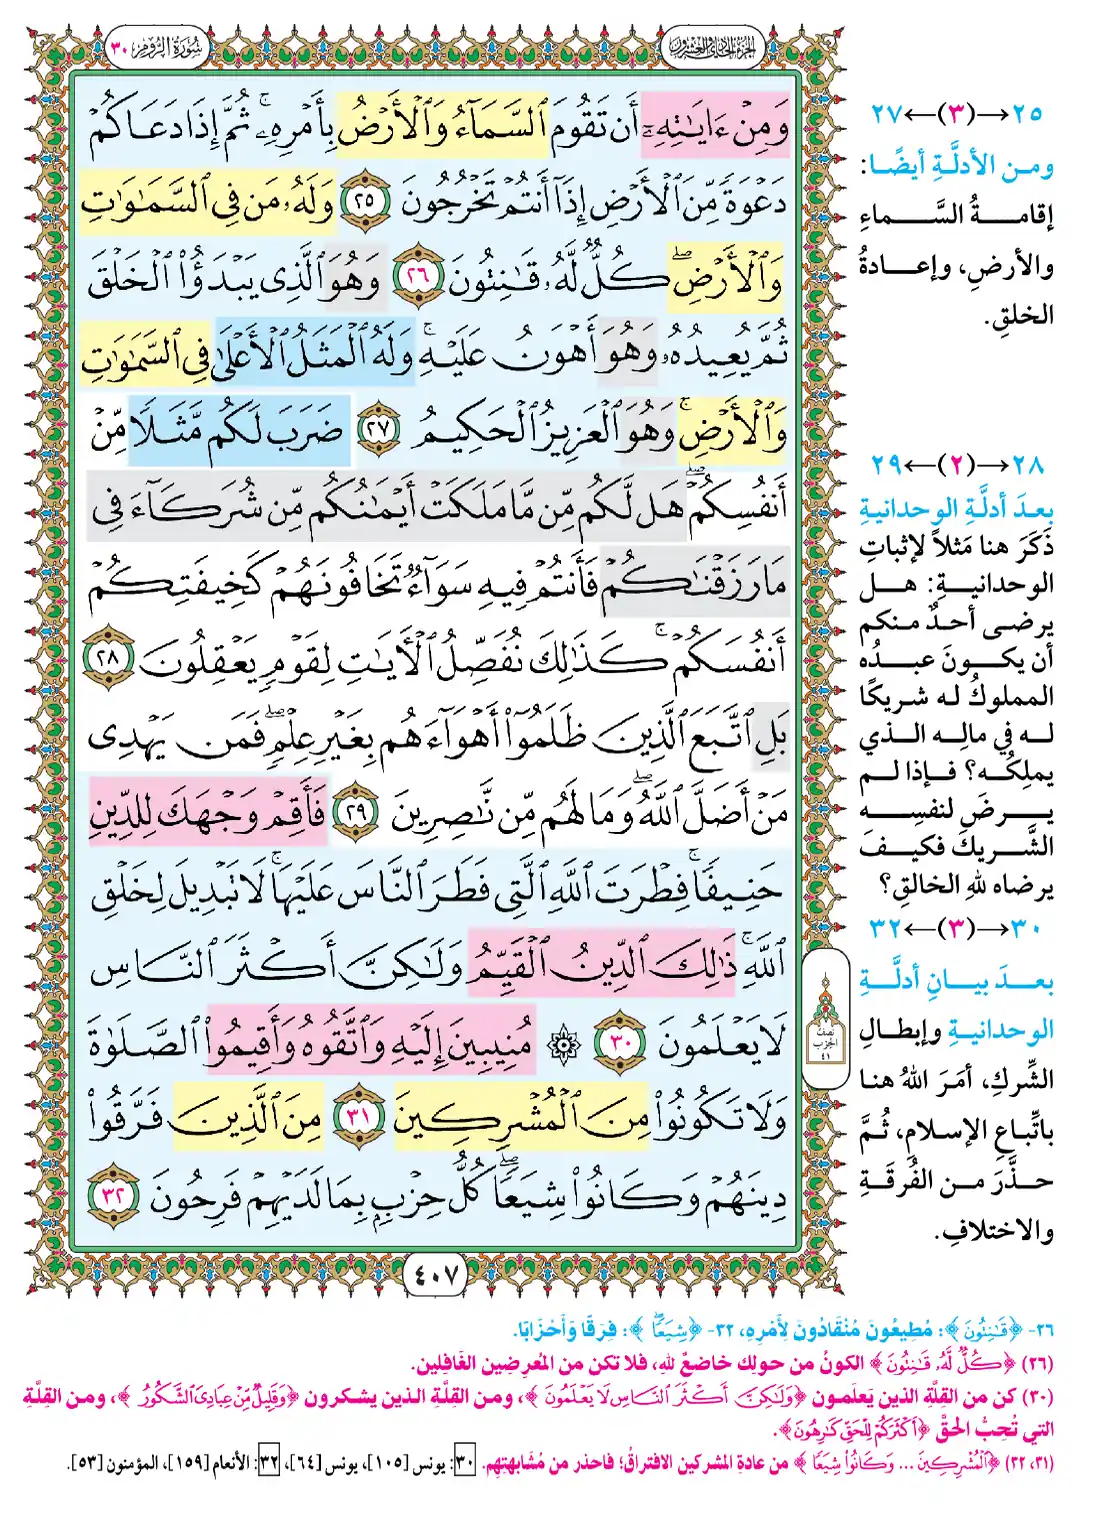 سُورَةُ الرُّومِ ٣٠
الجزء الحادي والعشرون
وَمِنْ ءَايَٰتِهِۦٓ أَن تَقُومَ ٱلسَّمَآءُ وَٱلْأَرْضُ بِأَمْرِهِۦ ۚ ثُمَّ إِذَا دَعَاكُمْ
دَعْوَةً مِّنَ ٱلْأَرْضِ إِذَآ أَنتُمْ تَخْرُجُونَ ٢٥ وَلَهُۥ مَن فِى ٱلسَّمَٰوَٰتِ
وَٱلْأَرْضِ ۖ كُلٌّ لَّهُۥ قَٰنِتُونَ ٢٦ وَهُوَ ٱلَّذِى يَبْدَؤُا۟ ٱلْخَلْقَ
ثُمَّ يُعِيدُهُۥ وَهُوَ أَهْوَنُ عَلَيْهِ ۚ وَلَهُ ٱلْمَثَلُ ٱلْأَعْلَىٰ فِى ٱلسَّمَٰوَٰتِ
وَٱلْأَرْضِ ۚ وَهُوَ ٱلْعَزِيزُ ٱلْحَكِيمُ ٢٧ ضَرَبَ لَكُم مَّثَلًا مِّنْ
أَنفُسِكُمْ ۖ هَل لَّكُم مِّن مَّا مَلَكَتْ أَيْمَٰنُكُم مِّن شُرَكَآءَ فِى
مَا رَزَقْنَٰكُمْ فَأَنتُمْ فِيهِ سَوَآءٌ تَخَافُونَهُمْ كَخِيفَتِكُمْ
أَنفُسَكُمْ ۚ كَذَٰلِكَ نُفَصِّلُ ٱلْءَايَٰتِ لِقَوْمٍ يَعْقِلُونَ ٢٨
بَلِ ٱتَّبَعَ ٱلَّذِينَ ظَلَمُوٓا۟ أَهْوَآءَهُم بِغَيْرِ عِلْمٍ ۖ فَمَن يَهْدِى
مَنْ أَضَلَّ ٱللَّهُ ۖ وَمَا لَهُم مِّن نَّٰصِرِينَ ٢٩ فَأَقِمْ وَجْهَكَ لِلدِّينِ
حَنِيفًا ۚ فِطْرَتَ ٱللَّهِ ٱلَّتِى فَطَرَ ٱلنَّاسَ عَلَيْهَا ۚ لَا تَبْدِيلَ لِخَلْقِ
ٱللَّهِ ۚ ذَٰلِكَ ٱلدِّينُ ٱلْقَيِّمُ وَلَٰكِنَّ أَكْثَرَ ٱلنَّاسِ
لَا يَعْلَمُونَ ٣٠ ۞ مُنِيبِينَ إِلَيْهِ وَٱتَّقُوهُ وَأَقِيمُوا۟ ٱلصَّلَوٰةَ
وَلَا تَكُونُوا۟ مِنَ ٱلْمُشْرِكِينَ ٣١ مِنَ ٱلَّذِينَ فَرَّقُوا۟
دِينَهُمْ وَكَانُوا۟ شِيَعًا ۖ كُلُّ حِزْبٍۭ بِمَا لَدَيْهِمْ فَرِحُونَ ٣٢
٤٠٧
نصف
الحزب
٤١
٢٥→(٣)←٢٧
ومن الأدلَّةِ أيضًا:
إقامةُ السَّماءِ
والأرضِ، وإعادةُ
الخلقِ.
٢٨→(٢)←٢٩
بعدَ أدلَّةِ الوحدانيةِ
ذَكَرَ هنا مَثلاً لإثباتِ
الوحدانيةِ: هل
يرضى أحدٌ منكم
أن يكونَ عبدُه
المملوكُ له شريكًا
له في مالِه الذي
يملِكُه؟ فإذا لم
يرضَ لنفسِه
الشَّريكَ فكيفَ
يرضاه للهِ الخالقِ؟
٣٠→(٣)←٣٢
بعدَ بيانِ أدلَّةِ
الوحدانيةِ وإبطالِ
الشِّركِ، أمَرَ اللهُ هنا
باتِّباعِ الإسلامِ، ثُمَّ
حذَّرَ من الفُرقةِ
والاختلافِ.
٢٦- ﴿قَٰنِتُونَ﴾: مُطِيعُونَ مُنْقَادُونَ لِأَمْرِهِ، ٣٢- ﴿شِيَعًا ۖ﴾: فِرَقًا وَأَحْزَابًا.
(٢٦) ﴿كُلٌّ لَّهُۥ قَٰنِتُونَ﴾ الكونُ من حولِك خاضعٌ للهِ، فلا تكن من المُعرِضين الغَافِلين.
(٣٠) كن من القِلَّةِ الذين يَعلَمون ﴿وَلَٰكِنَّ أَكْثَرَ ٱلنَّاسِ لَا يَعْلَمُونَ﴾، ومن القِلَّةِ الذين يشكرون ﴿وَقَلِيلٌ مِّنْ عِبَادِىَ ٱلشَّكُورُ﴾، ومن القِلَّةِ
التي تُحِبُّ الحقَّ ﴿أَكْثَرَكُمْ لِلْحَقِّ كَٰرِهُونَ﴾.
(٣١، ٣٢) ﴿ٱلْمُشْرِكِينَ ... وَكَانُوا۟ شِيَعًا﴾ من عادةِ المشركين الافتراقُ؛ فاحذر من مُشابهتِهِم. ٣٠: يونس [١٠٥]، يونس [٦٤]، ٣٢: الأنعام [١٥٩]، المؤمنون [٥٣].